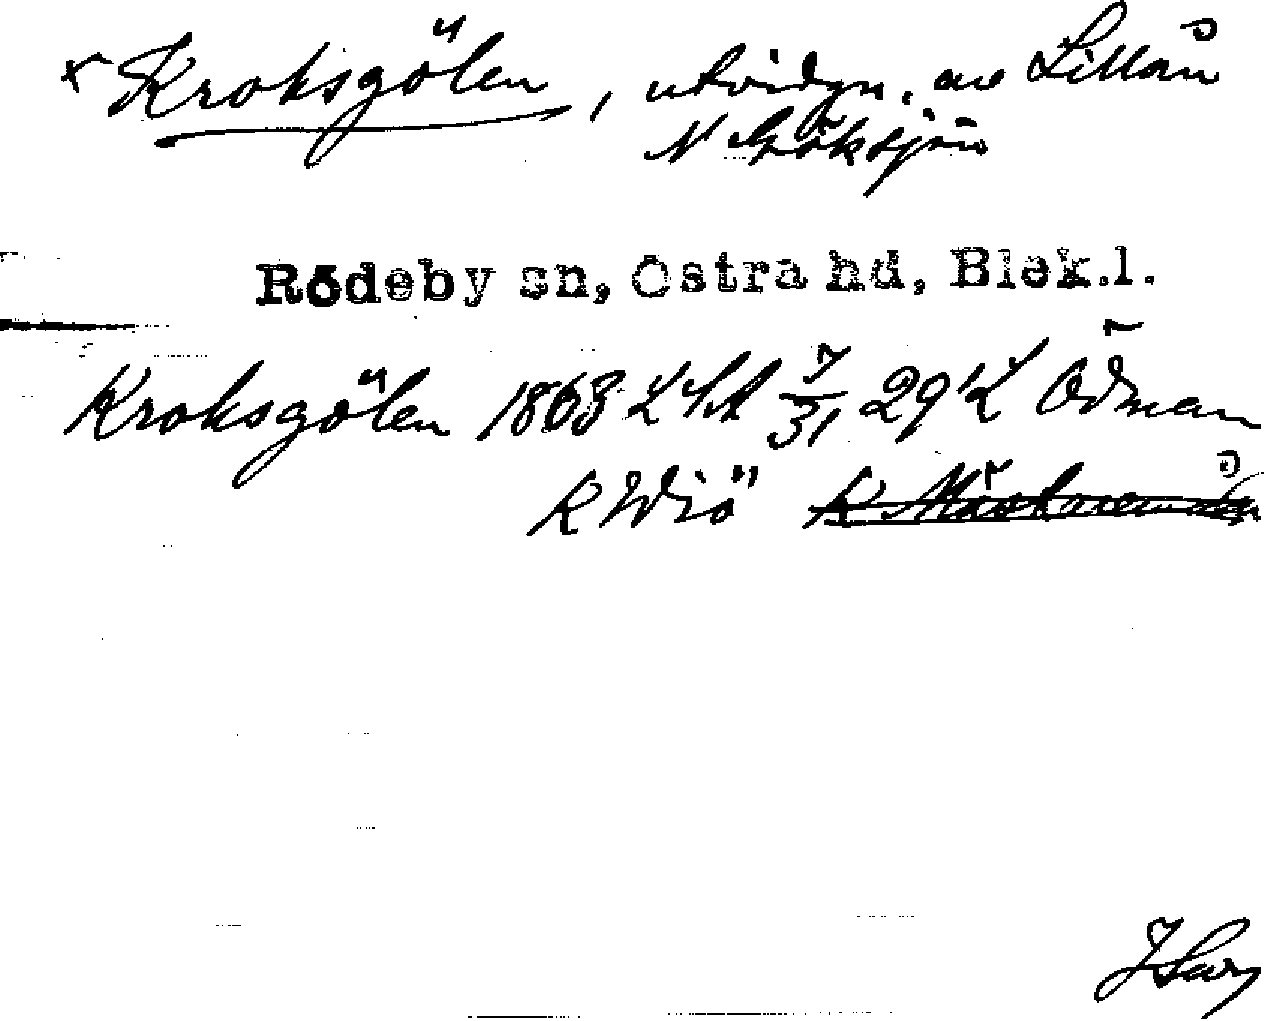 × Kroksgölen, utvidgn. av Lillån
N Göksjön
Rödeby sn, Östra hd, Blek.l.
Kroksgölen 1863 L Skt 7/31 29 L Ödman
K Wiö K